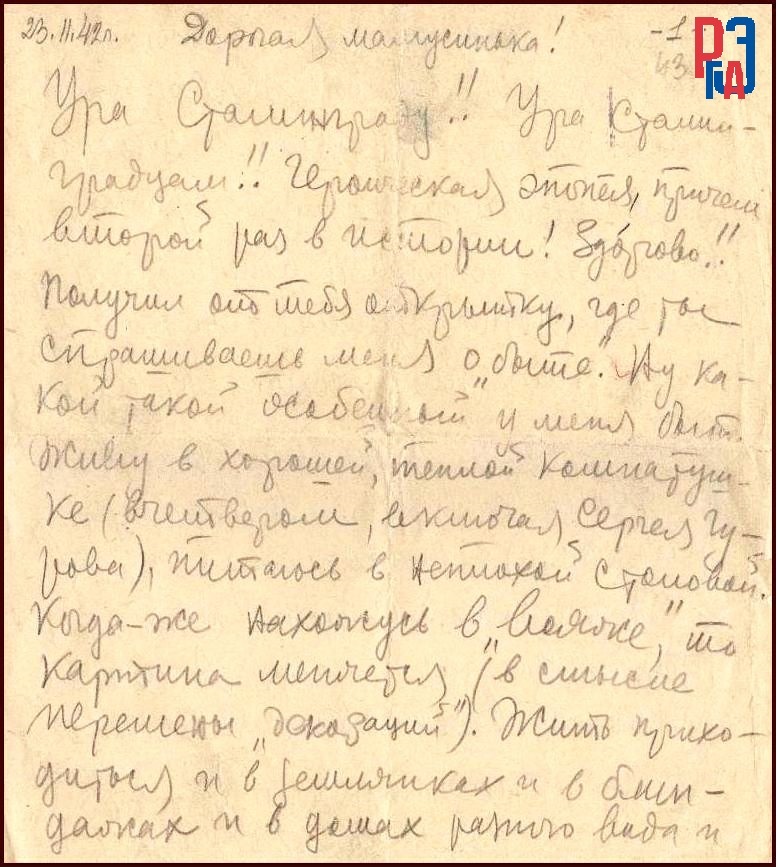 23.11.42г. Дорогая мамусинька! -1-
43
РГАЭ
Ура Сталинграду!! Ура Сталин-
градцам!! Героическая эпопея, причем
второй раз в истории! Здо́рово!!
Получил от тебя открытку, где ты
спрашиваешь меня о „быте". Ну ка-
кой такой особенный у меня быт.
Живу в хорошей, теплой комнатуш-
ке (вчетвером, включая Сергея Гу-
рова), питаюсь в неплохой столовой.
Когда-же нахожусь в „вояже", то
картина меняется (в смысле
перемены „декораций"). Жить прихо-
диться и в землянках и в блин-
дажах и в домах разного вида и